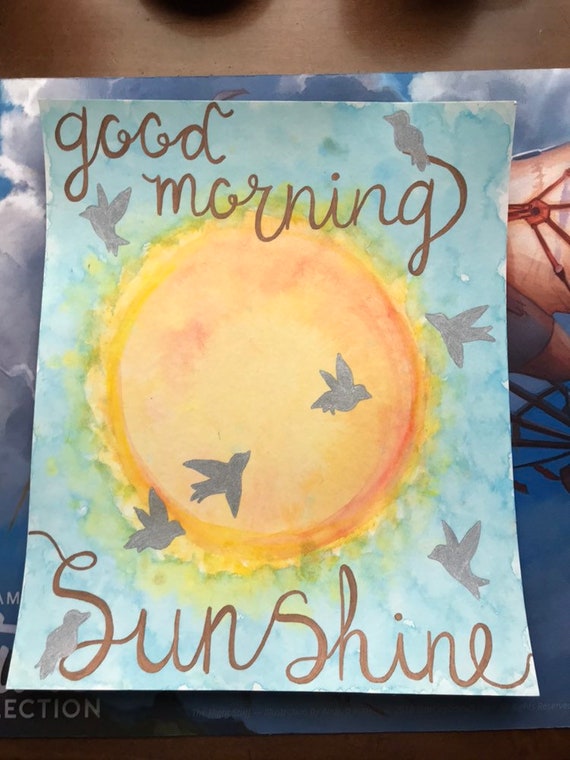 good
morning
Sunshine
AM
LECTION